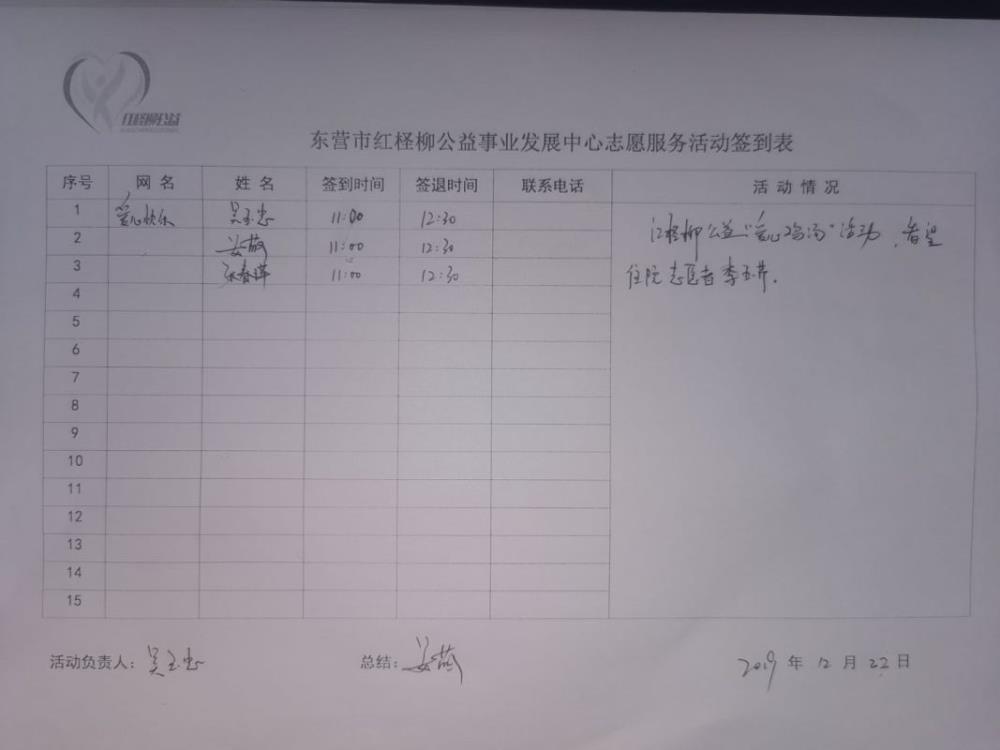 红柽柳公益
东营市红柽柳公益事业发展中心志愿服务活动签到表
序号 网名 姓名 签到时间 签退时间 联系电话 活动情况
1 爱心快乐 吴玉忠 11:00 12:30
2 11:00 12:30
3 11:00 12:30
红柽柳公益“爱心鸡汤”活动,看望
住院志愿者李玉井.
4
5
6
7
8
9
10
11
12
13
14
15
活动负责人: 吴玉忠 总结: 2019年12月22日